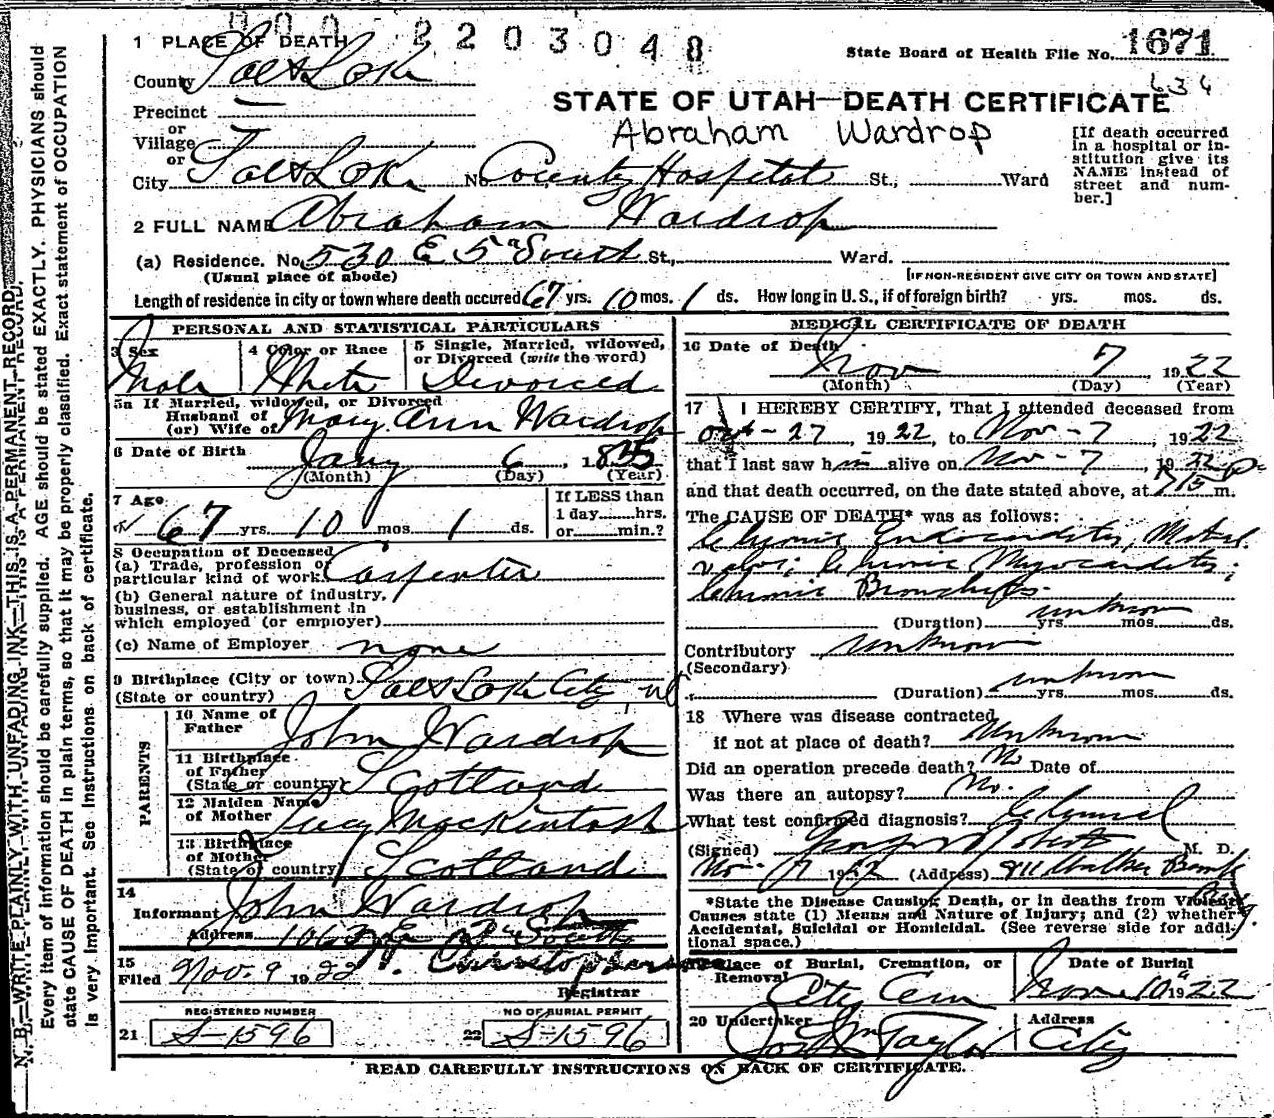 2203048
1 PLACE OF DEATH
State Board of Health File No. 1671
634
County Salt Lake
STATE OF UTAH—DEATH CERTIFICATE
Precinct
Abraham Wardrop
or
Village
or
City Salt Lake No. County Hospital St., Ward
[If death occurred
in a hospital or in-
stitution give its
NAME instead of
street and num-
ber.]
2 FULL NAME Abraham Wardrop
(a) Residence. No. 530 E 5th South St., Ward.
(Usual place of abode) [IF NON-RESIDENT GIVE CITY OR TOWN AND STATE]
Length of residence in city or town where death occured 67 yrs. 10 mos. 1 ds. How long in U.S., if of foreign birth? yrs. mos. ds.
PERSONAL AND STATISTICAL PARTICULARS
3 Sex
Male
4 Color or Race
White
5 Single, Married, widowed,
or Divorced (write the word)
Divorced
5a If Married, widowed, or Divorced
Husband of
(or) Wife of Mary Ann Wardrop
6 Date of Birth Jany 6, 1855
(Month) (Day) (Year)
7 Age
67 yrs. 10 mos. 1 ds.
If LESS than
1 day......hrs.
or......min.?
8 Occupation of Deceased
(a) Trade, profession or
particular kind of work. Carpenter
(b) General nature of industry,
business, or establishment in
which employed (or employer)
(c) Name of Employer none
9 Birthplace (City or town) Salt Lake City, ut
(State or country)
PARENTS
10 Name of
Father John Wardrop
11 Birthplace
of Father
(State or country) Scotland
12 Maiden Name
of Mother Lucy Mackintosh
13 Birthplace
of Mother
(State of country) Scotland
14
Informant John Wardrop
Address
15
Filed Nov. 9 1922 Christopherson
Registrar
REGISTERED NUMBER
21 S-1596
NO OF BURIAL PERMIT
22 S-1596
MEDICAL CERTIFICATE OF DEATH
16 Date of Death
Nov 7 1922
(Month) (Day) (Year)
17 I HEREBY CERTIFY, That I attended deceased from
Oct-27, 1922, to Nov-7, 1922
that I last saw him alive on Nov-7, 1922
and that death occurred, on the date stated above, at 715 p m.
The CAUSE OF DEATH* was as follows:
Chronic Endocarditis, Mitral
valve, Chronic Myocarditis,
Chronic Bronchitis.
(Duration) unknown yrs. mos. ds.
Contributory unknown
(Secondary)
(Duration) unknown yrs. mos. ds.
18 Where was disease contracted
if not at place of death? Unknown
Did an operation precede death? No Date of
Was there an autopsy? No.
What test confirmed diagnosis? Clinical
(Signed) Roberts M. D.
Nov-7 1922 (Address) Walker Bank
Bldg.
*State the Disease Causing Death, or in deaths from Violent
Causes state (1) Means and Nature of Injury; and (2) whether
Accidental, Suicidal or Homicidal. (See reverse side for addi-
tional space.)
19 Place of Burial, Cremation, or
Removal
City Cem
Date of Burial
Nov 10 1922
20 Undertaker
Jos. Wm. Taylor
Address
City
READ CAREFULLY INSTRUCTIONS ON BACK OF CERTIFICATE.
N. B.—WRITE PLAINLY WITH UNFADING INK—THIS IS A PERMANENT RECORD.
Every item of information should be carefully supplied. AGE should be stated EXACTLY. PHYSICIANS should
state CAUSE OF DEATH in plain terms, so that it may be properly classified. Exact statement of OCCUPATION
is very important. See instructions on back of certificate.